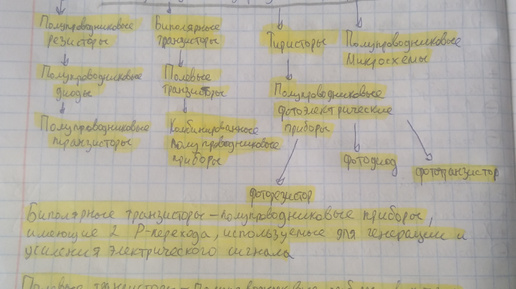 Полупроводниковые
резисторы
Полупроводниковые
диоды
Полупроводниковые
транзисторы
Биполярные
транзисторы
Полевые
транзисторы
Комбинированные
полупроводниковые
приборы
Тиристоры
Полупроводниковые
фотоэлектрические
приборы
Полупроводниковые
Микросхемы
фоторезистор
фотодиод
фототранзистор
Биполярные транзисторы - полупроводниковые приборы,
имеющие 2 Р-перехода, используемые для генерации и
усиления электрического сигнала